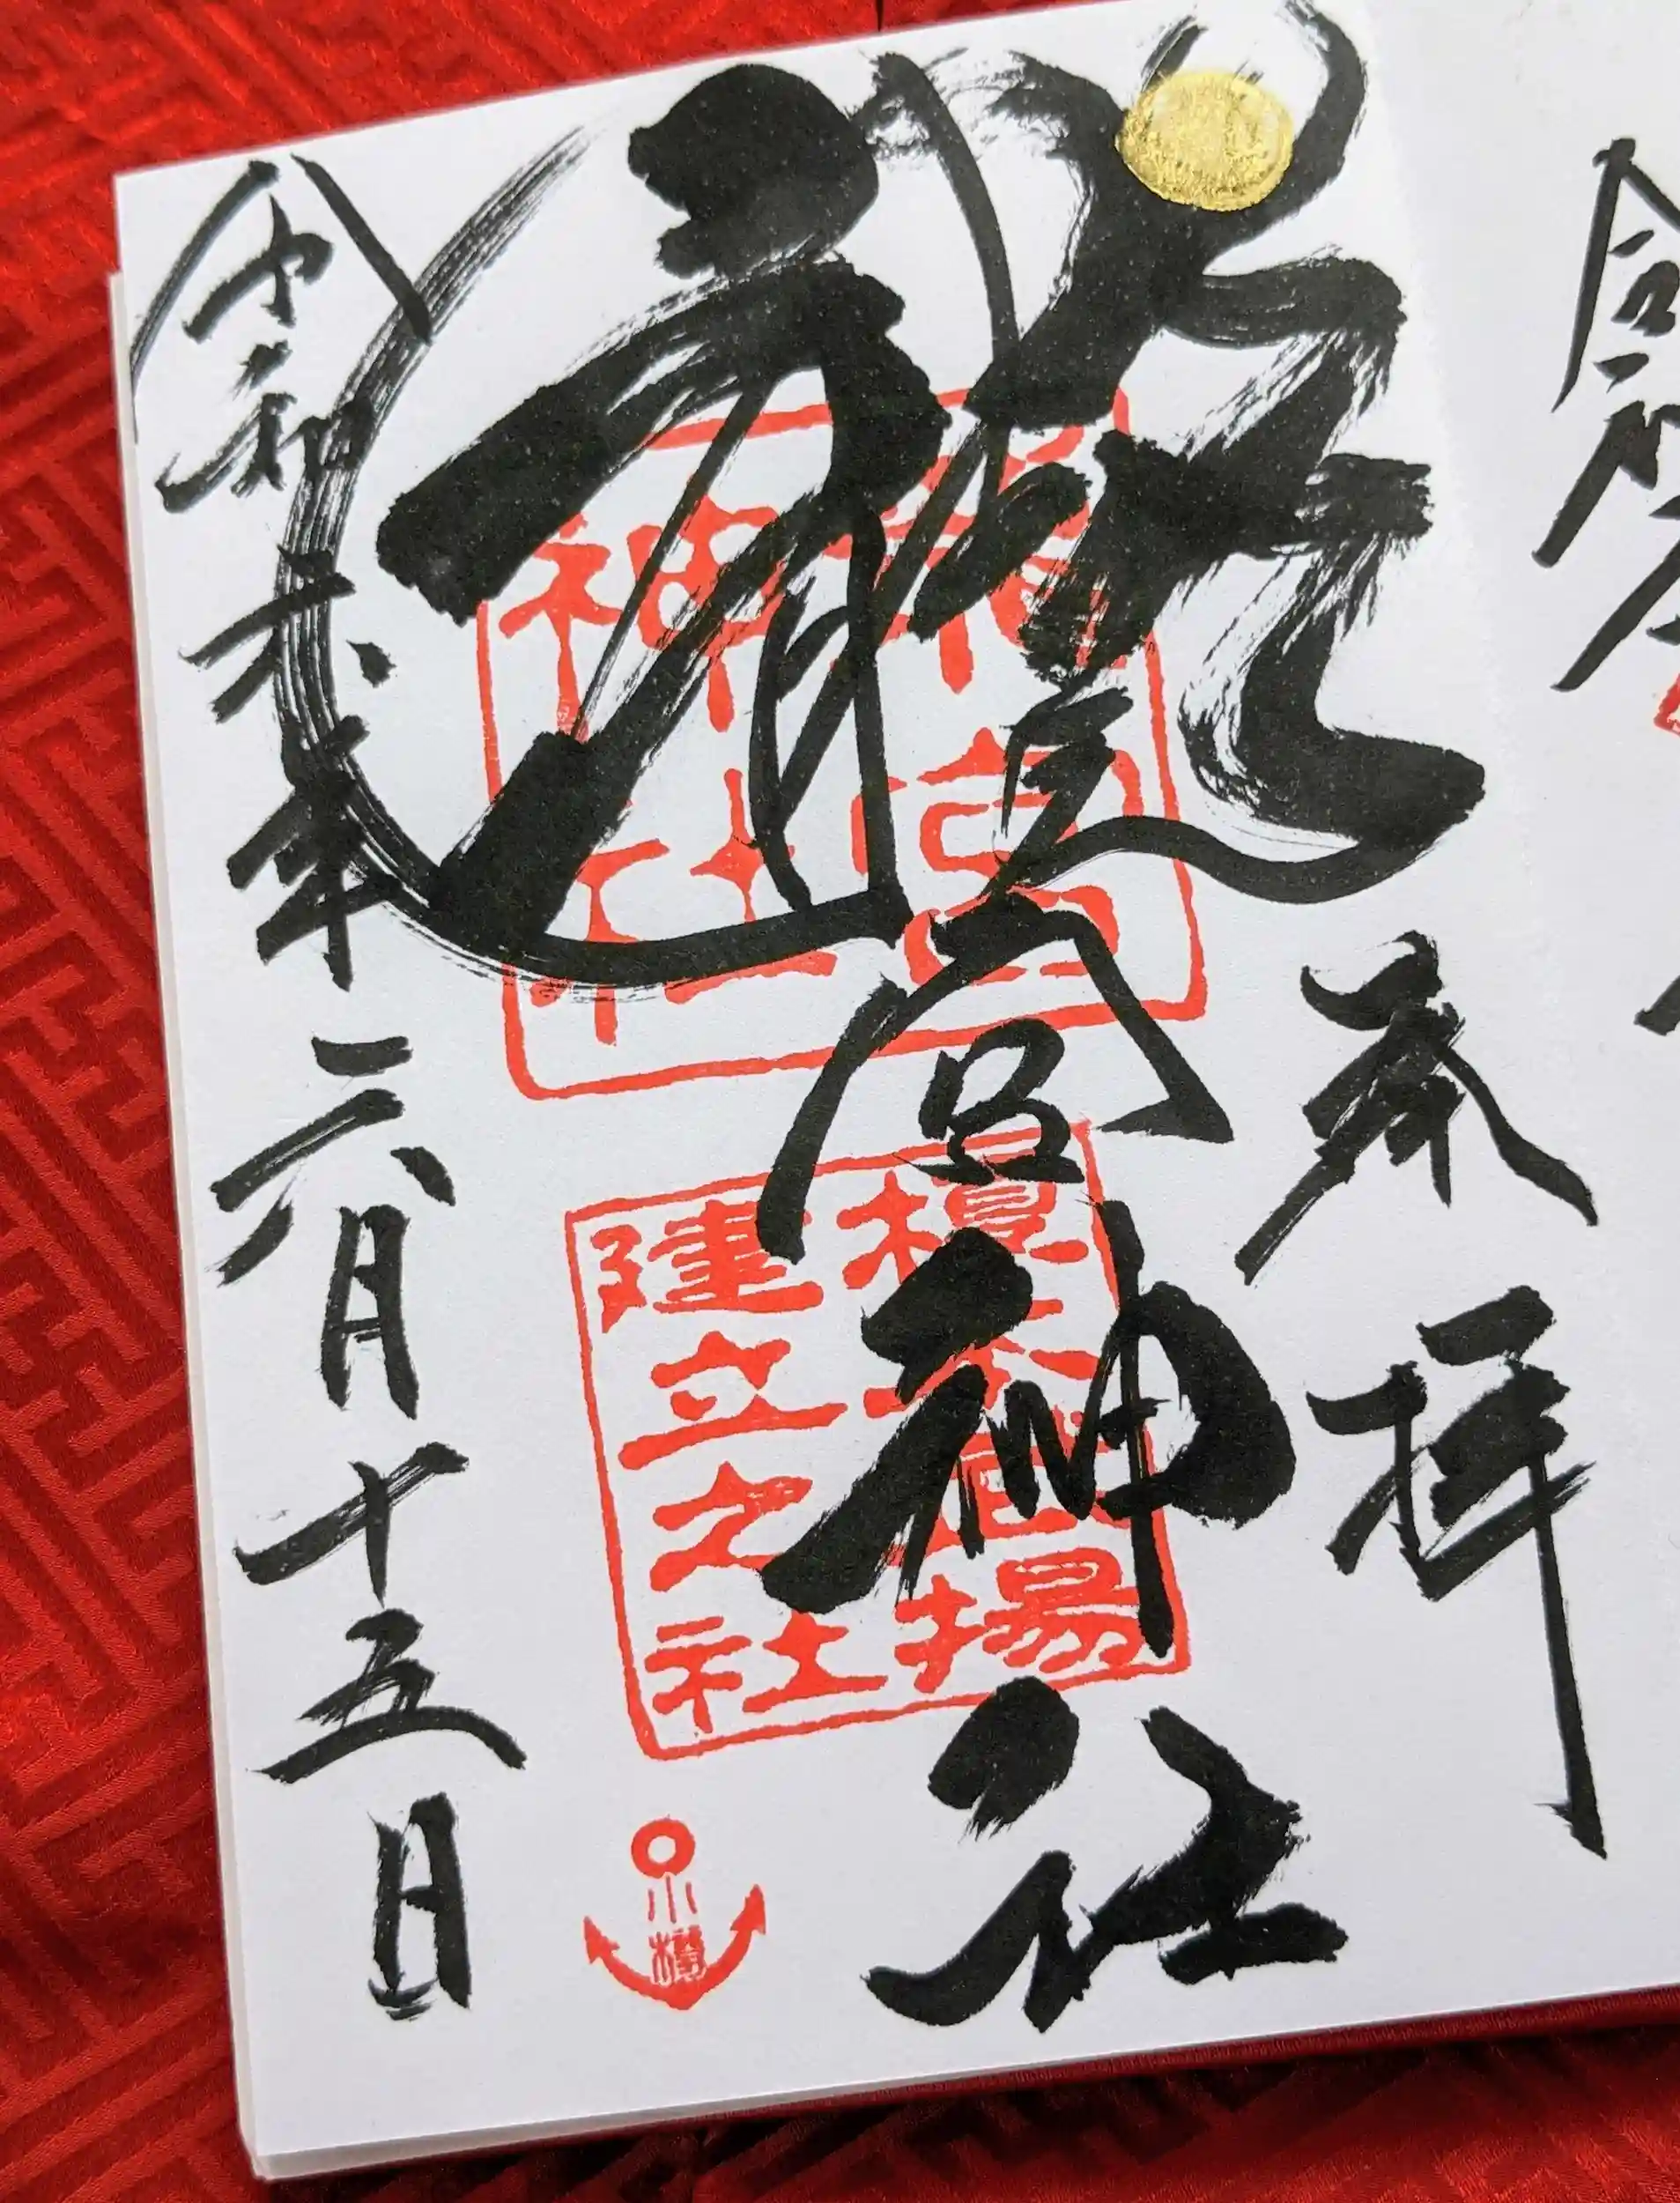 奉拝
龍宮神社
龍宮
神社
榎本武揚
建立之社
小樽
令和六年六月十五日